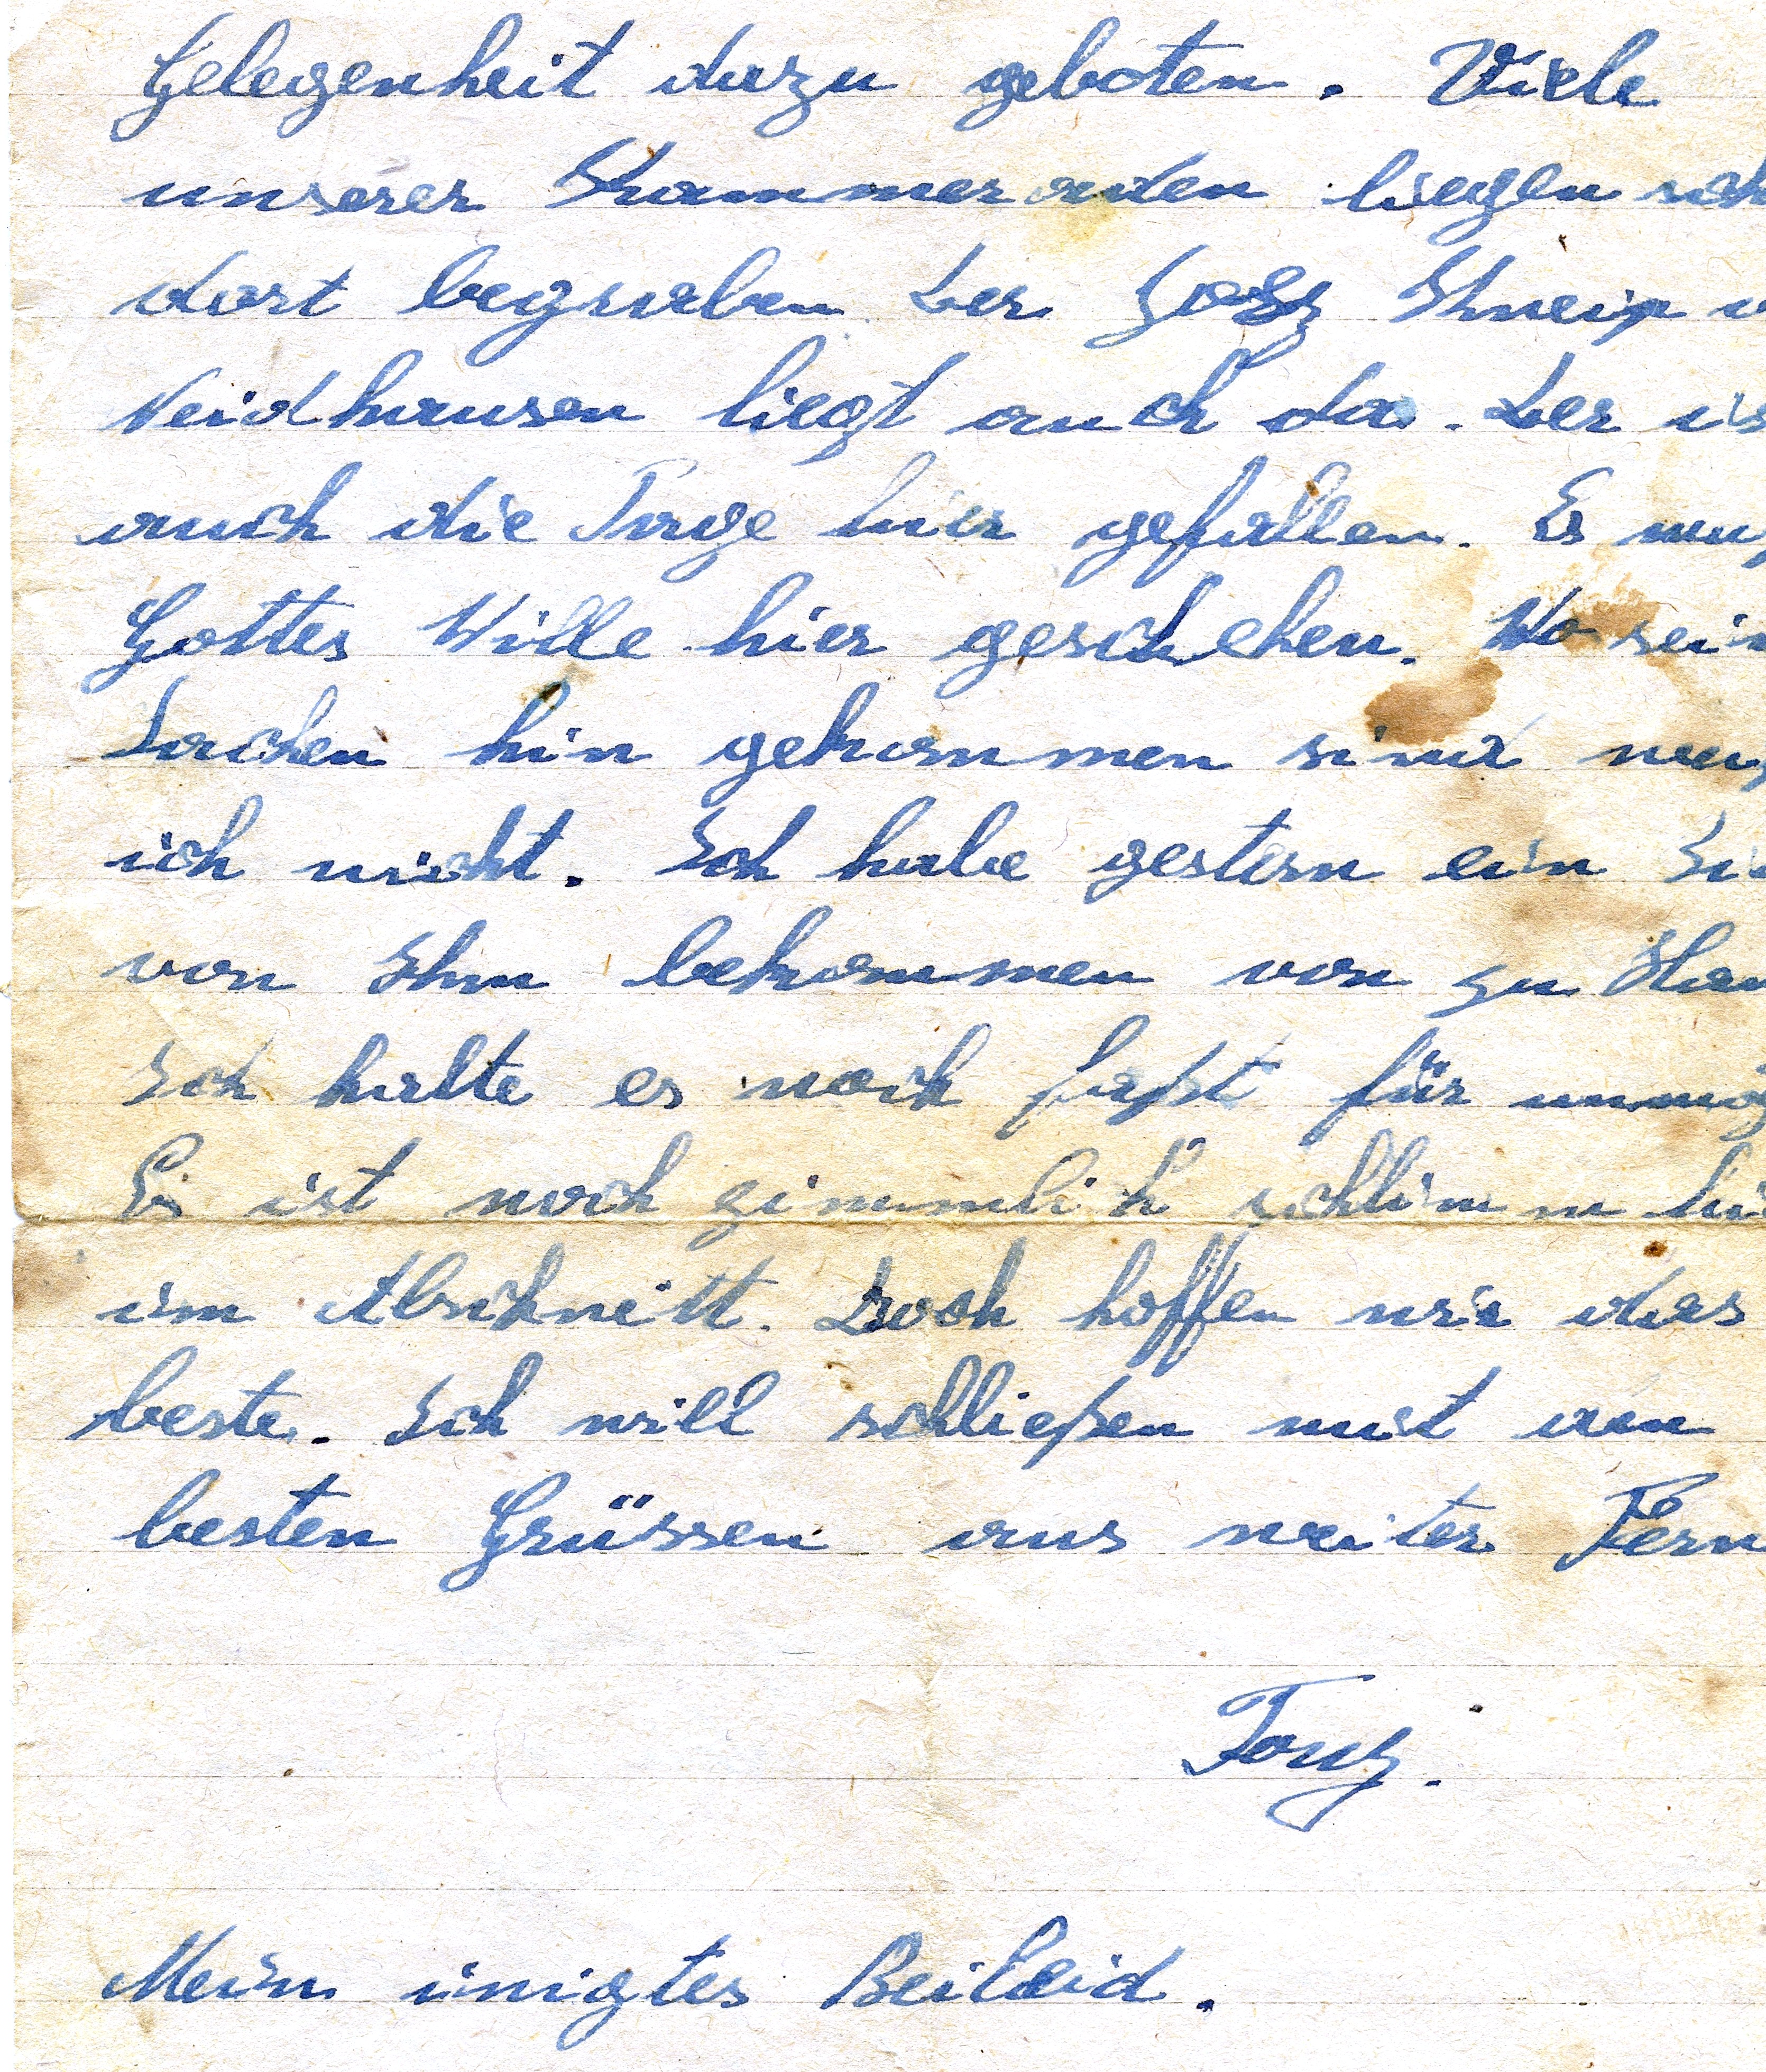 Gelegenheit dazu geboten. Viele
unserer Kammeraden liegen sch
dort begraben. Der Kneip v
Neidhausen liegt auch da. Der is
auch die Tage hier gefallen. Es muß
Gottes Wille hier geschehen. Wo sein
Sachen hin gekommen sind weiß
ich nicht. Ich habe gestern ein
von Ihm bekommen von zu Hau
Ich halte es noch faßt für unmög
Es ist noch zimmlich schlimm hie
im Abschnitt. Doch hoffen wir das
beste. Ich will schließen mit den
besten Grüssen aus weiter Fern
Tony.
Mein inigtes Beileid.